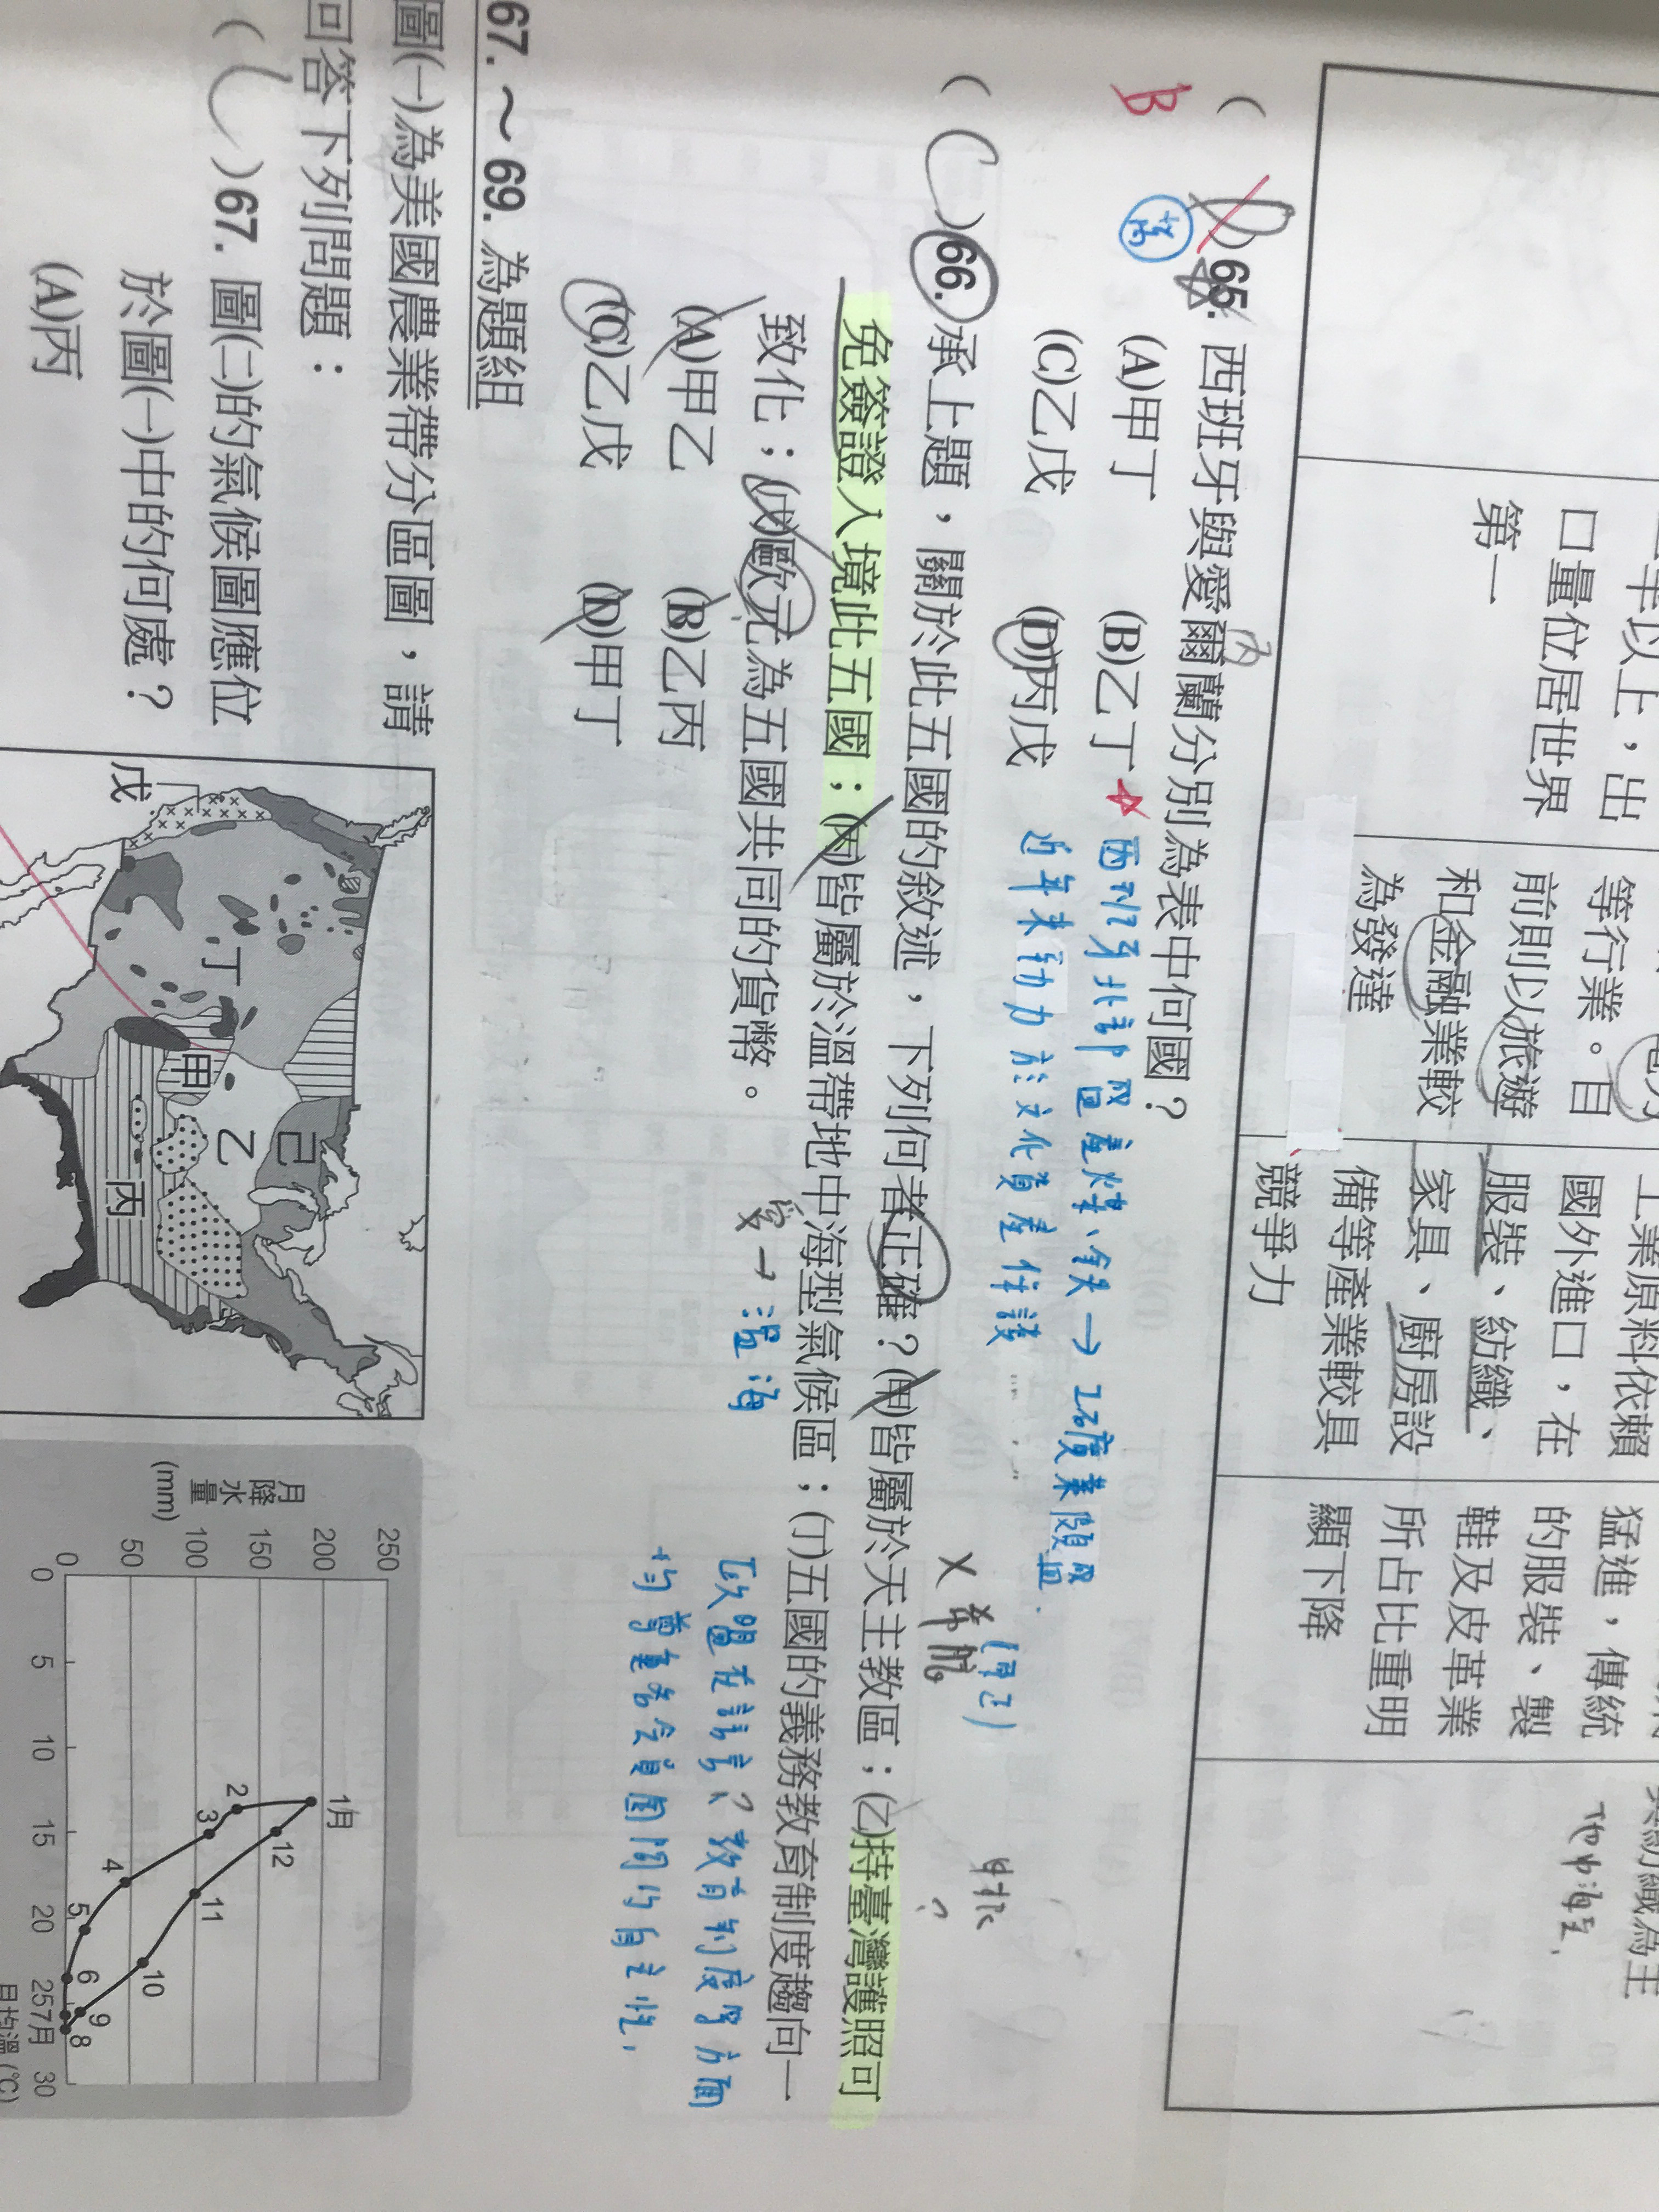 二年以上，出
口量位居世界
第一
等行業。目
前則以旅遊
和金融業較
為發達
工業原料依賴
國外進口，在
服裝、紡織、
家具、廚房設
備等產業較具
競爭力
猛進，傳統
的服裝、製
鞋及皮革業
所占比重明
顯下降
紡織為主
地中海型.
B
(D)65. 西班牙與愛爾蘭分別為表中何國？
丙
(A)甲丁 (B)乙丁
(C)乙戊 (D)丙戊
西班牙北部盛產煤、鐵→
近年來致力於文化資產件設
X 希臘
(東正)
(C)66. 承上題，關於此五國的敘述，下列何者正確？(甲)皆屬於天主教區；(乙)持臺灣護照可
免簽證入境此五國；(丙)皆屬於溫帶地中海型氣候區；(丁)五國的義務教育制度趨向一
致化；(戊)歐元為五國共同的貨幣。
愛→溫海
(A)甲乙 (B)乙丙
(C)乙戊 (D)甲丁
歐盟在語言、教育制度等方面
均尊重各會員國間的自主性.
67.～69. 為題組
圖(一)為美國農業帶分區圖，請
回答下列問題：
(C)67. 圖(二)的氣候圖應位
於圖(一)中的何處？
(A)丙
戊
丁
甲
乙
己
丙
月降水量
(mm)
250
200
150
100
50
0
1月
2
3
12
4
11
5
10
6
9
7月
8
0 5 10 15 20 25 30
月均溫(℃)